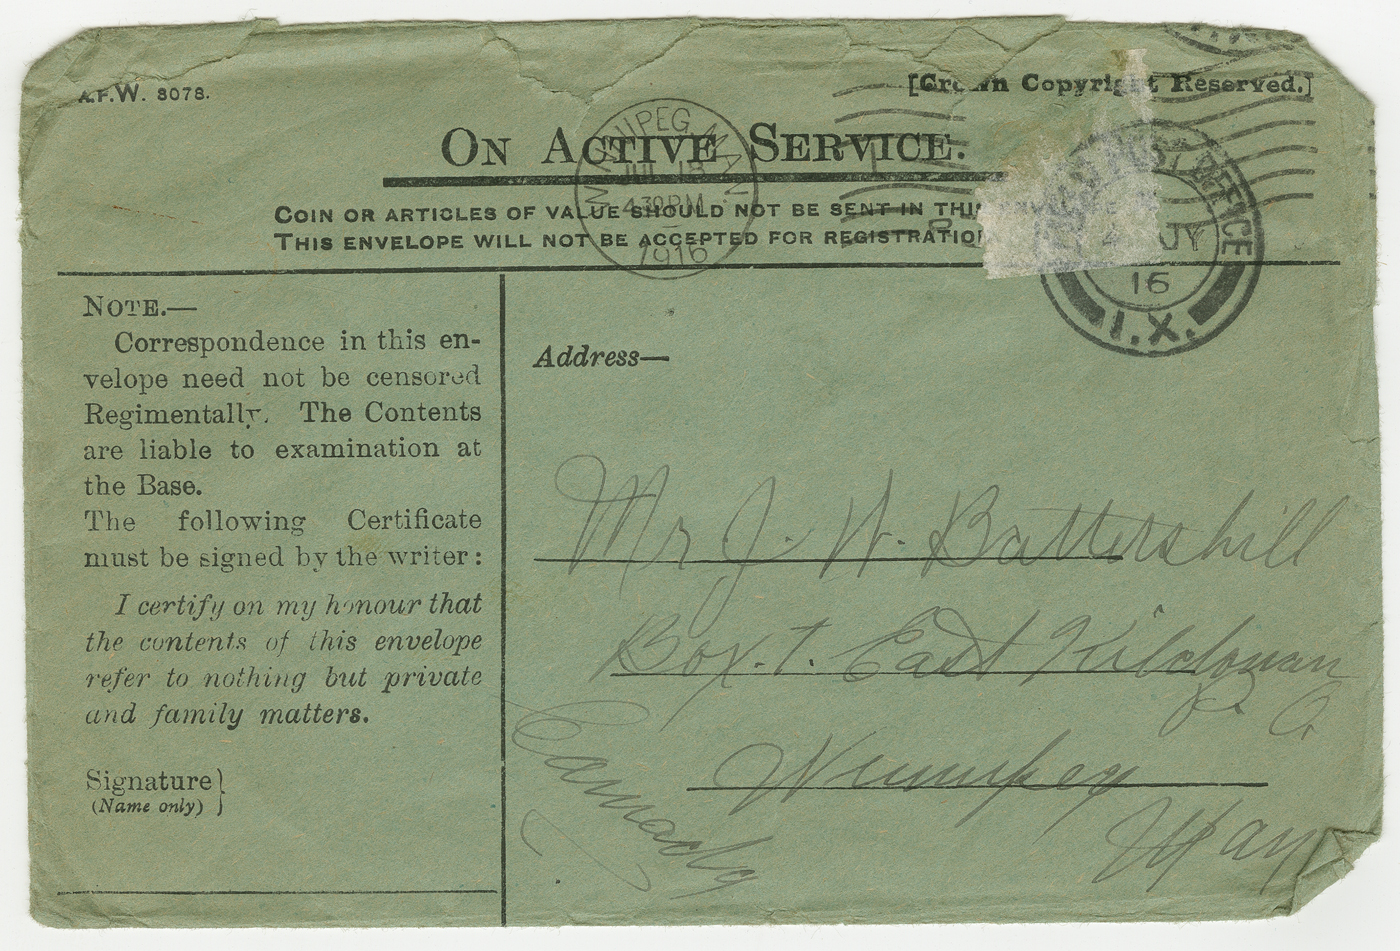 A.F.W. 3078.
[Crown Copyright Reserved.]
ON ACTIVE SERVICE.
COIN OR ARTICLES OF VALUE SHOULD NOT BE SENT IN THIS
THIS ENVELOPE WILL NOT BE ACCEPTED FOR REGISTRATION
WINNIPEG MAN.
JUL 18
430PM
1916
FIELD POST OFFICE
4 JY
16
I.X.
NOTE.—
Correspondence in this en-
velope need not be censored
Regimentally. The Contents
are liable to examination at
the Base.
The following Certificate
must be signed by the writer:
I certify on my honour that
the contents of this envelope
refer to nothing but private
and family matters.
Signature}
(Name only)
Address—
Mr J. W. Battershill
Box. 1. East Kildonan
P. O.
Winnipeg
Man
Canada